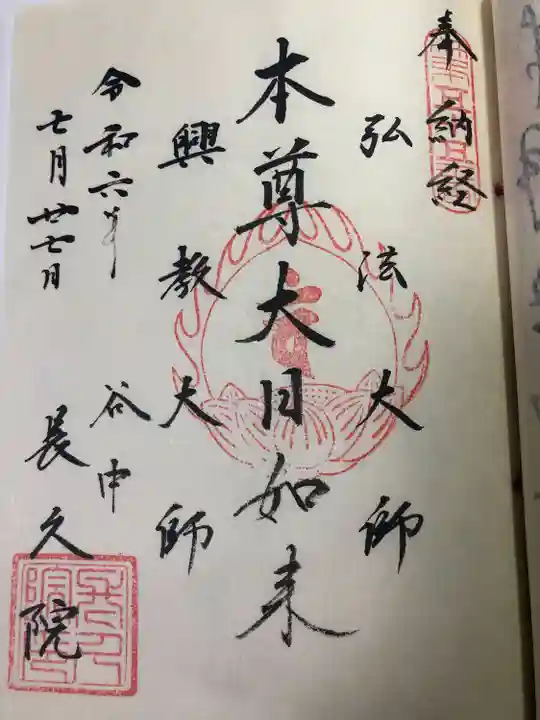 奉納経
弘法大師
本尊大日如来
興教大師
令和六年
七月廿七日
谷中
長久院